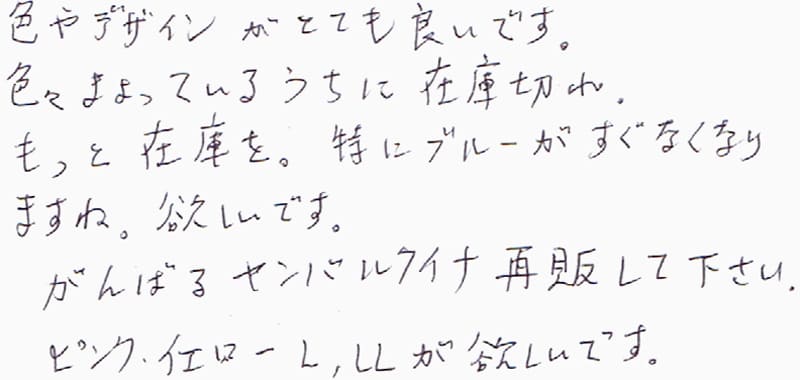 色やデザインがとても良いです。
色々まよっているうちに在庫切れ.
もっと在庫を。特にブルーがすぐなくなり
ますね。欲しいです。
がんばるヤンバルクイナ再販して下さい.
ピンク.イエローL,LLが欲しいです。